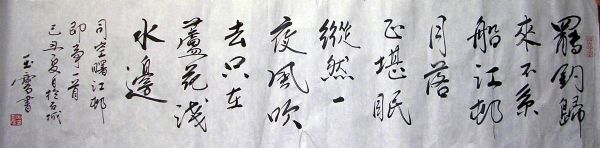 罷釣歸
來不系
船江邨
月落
正堪眠
縱然一
夜風吹
去只在
蘆花淺
水邊
司空曙江邨
即事一首
己丑夏月於石城
玉賓書